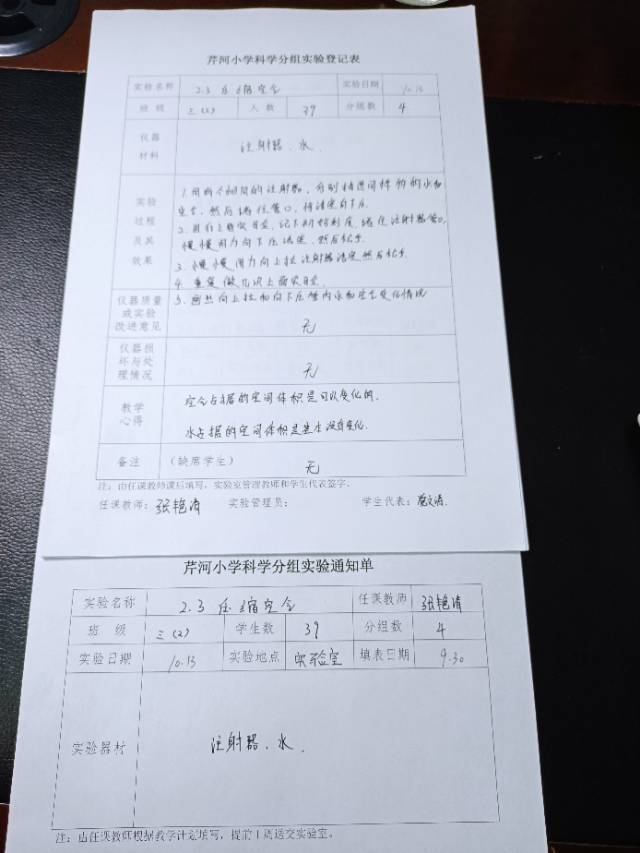 芹河小学科学分组实验登记表
实验名称 2.3 压缩空气 实验日期 10.13
班 级 三(2) 人 数 39 分组数 4
仪器材料 注射器、水、
实验过程及其效果
1.用两个相同的注射器,分别抽进同样多的水和
空气,然后堵住管口,将活塞向下压.
刻度,堵住注射器管口,
慢慢用力向下压活塞,然后松手.
3.慢慢用力向上拉注射器活塞然后松手
4.重复做几次上面实验.
5.画出向上拉和向下压管内水和空气变化情况
仪器质量或实验改进意见 无
仪器损坏与处理情况 无
教学心得
空气占据的空间体积是可以变化的.
水占据的空间体积是没有变化.
备注 (缺席学生) 无
注:由任课教师课后填写,实验室管理教师和学生代表签字。
任课教师:张艳涛 实验管理员: 学生代表:
芹河小学科学分组实验通知单
实验名称 2.3 压缩空气 任课教师 张艳涛
班 级 三(2) 学生数 39 分组数 4
实验日期 10.13 实验地点 实验室 填表日期 9.30
实验器材 注射器、水、
注:由任课教师根据教学计划填写,提前1周送交实验室。